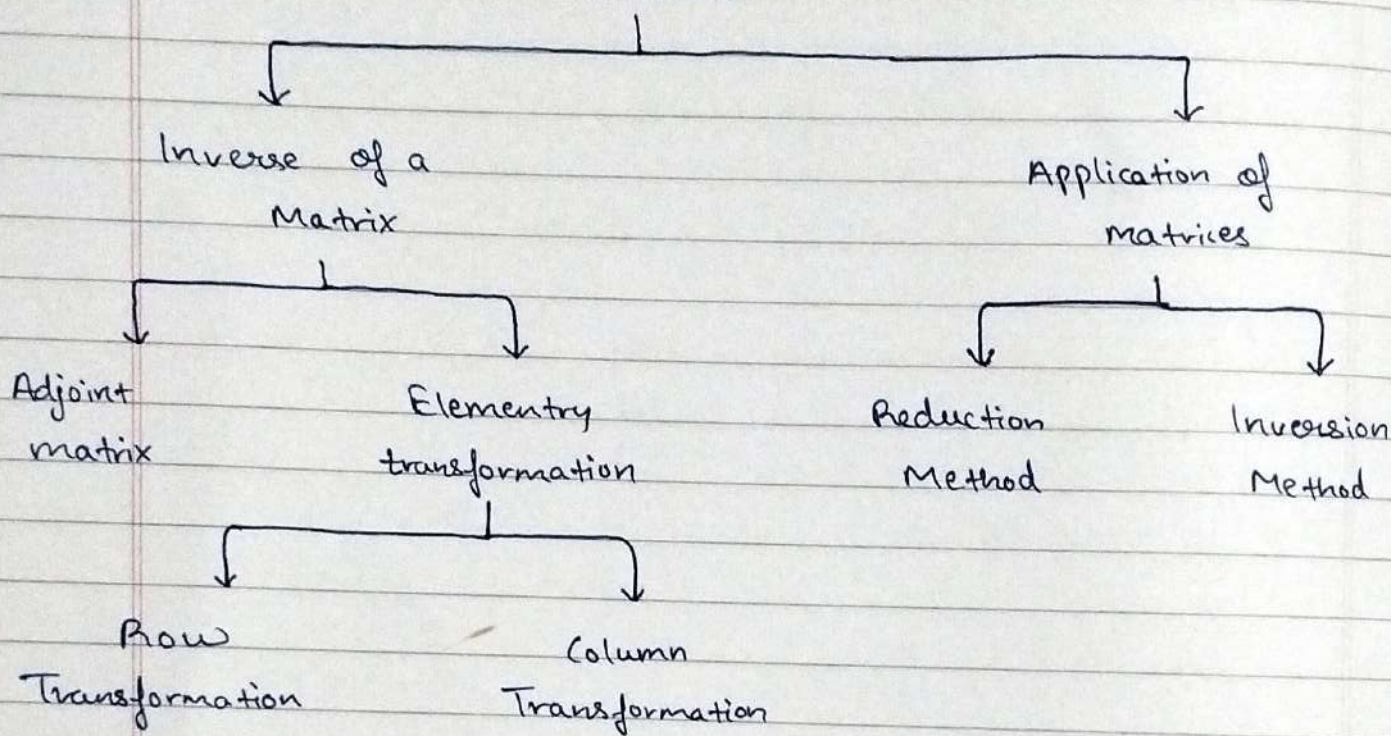 Inverse of a
Matrix
Application of
Matrices
Adjoint
matrix
Elementry
transformation
Reduction
Method
Inversion
Method
Row
Transformation
Column
Transformation